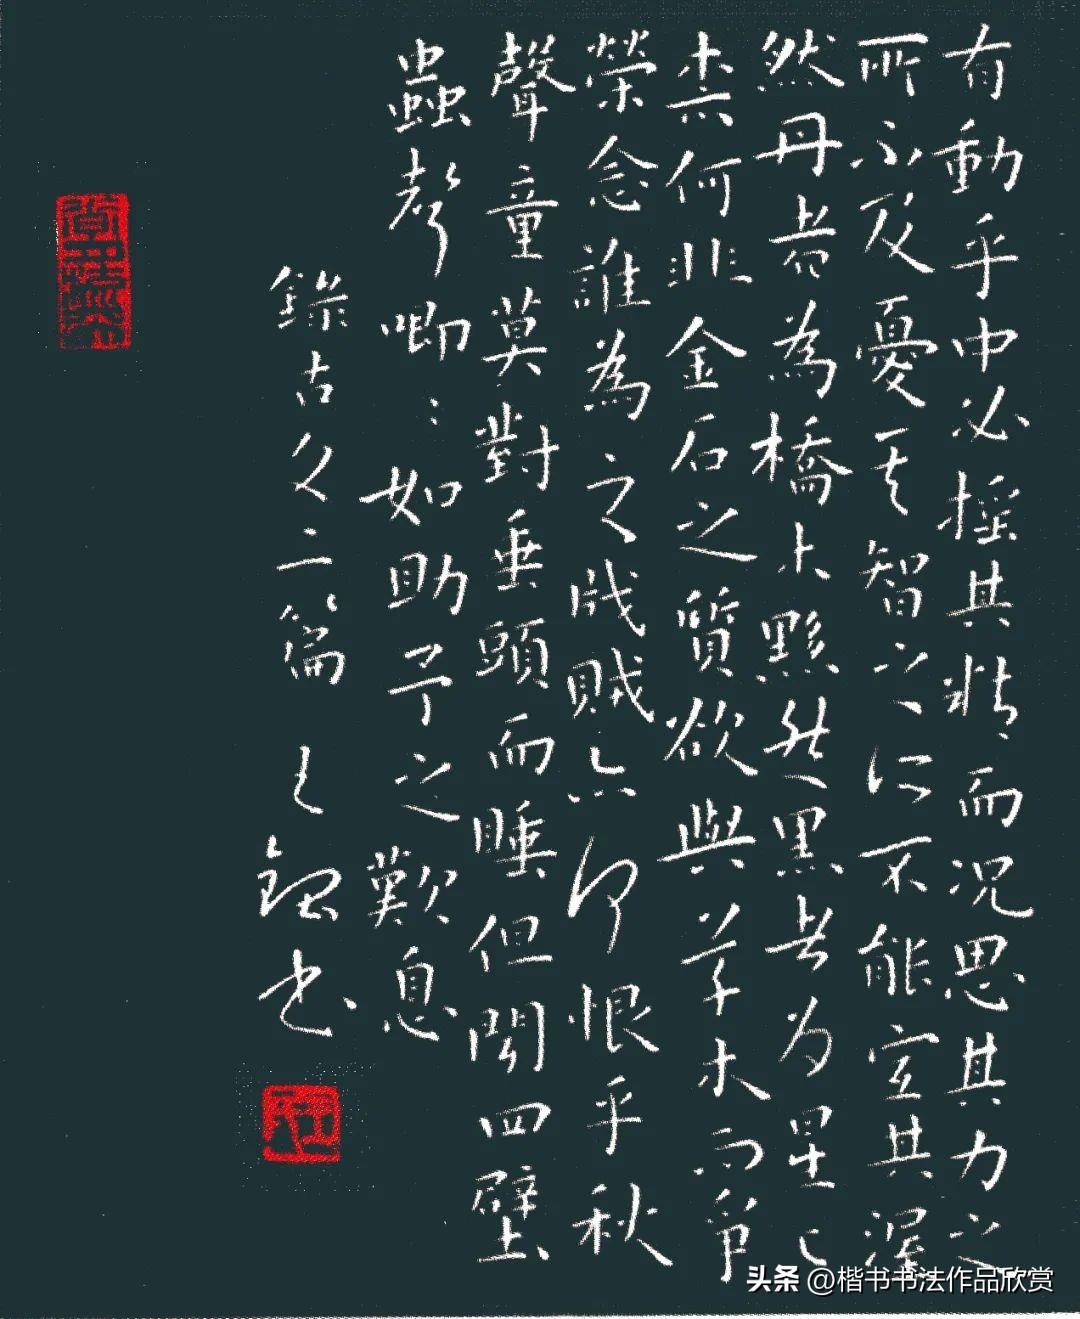 有動乎中必摇其精而况思其力之
所不及憂其智之所不能宜其渥
然丹者為橋木黟然黑者为星〻
柰何非金石之質欲與草木而争
榮念誰為之戕賊亦何恨乎秋
聲童莫對垂頭而睡但聞四壁
蟲聲唧〻如助予之歎息
錄古文二篇 书
头条 @楷书书法作品欣赏